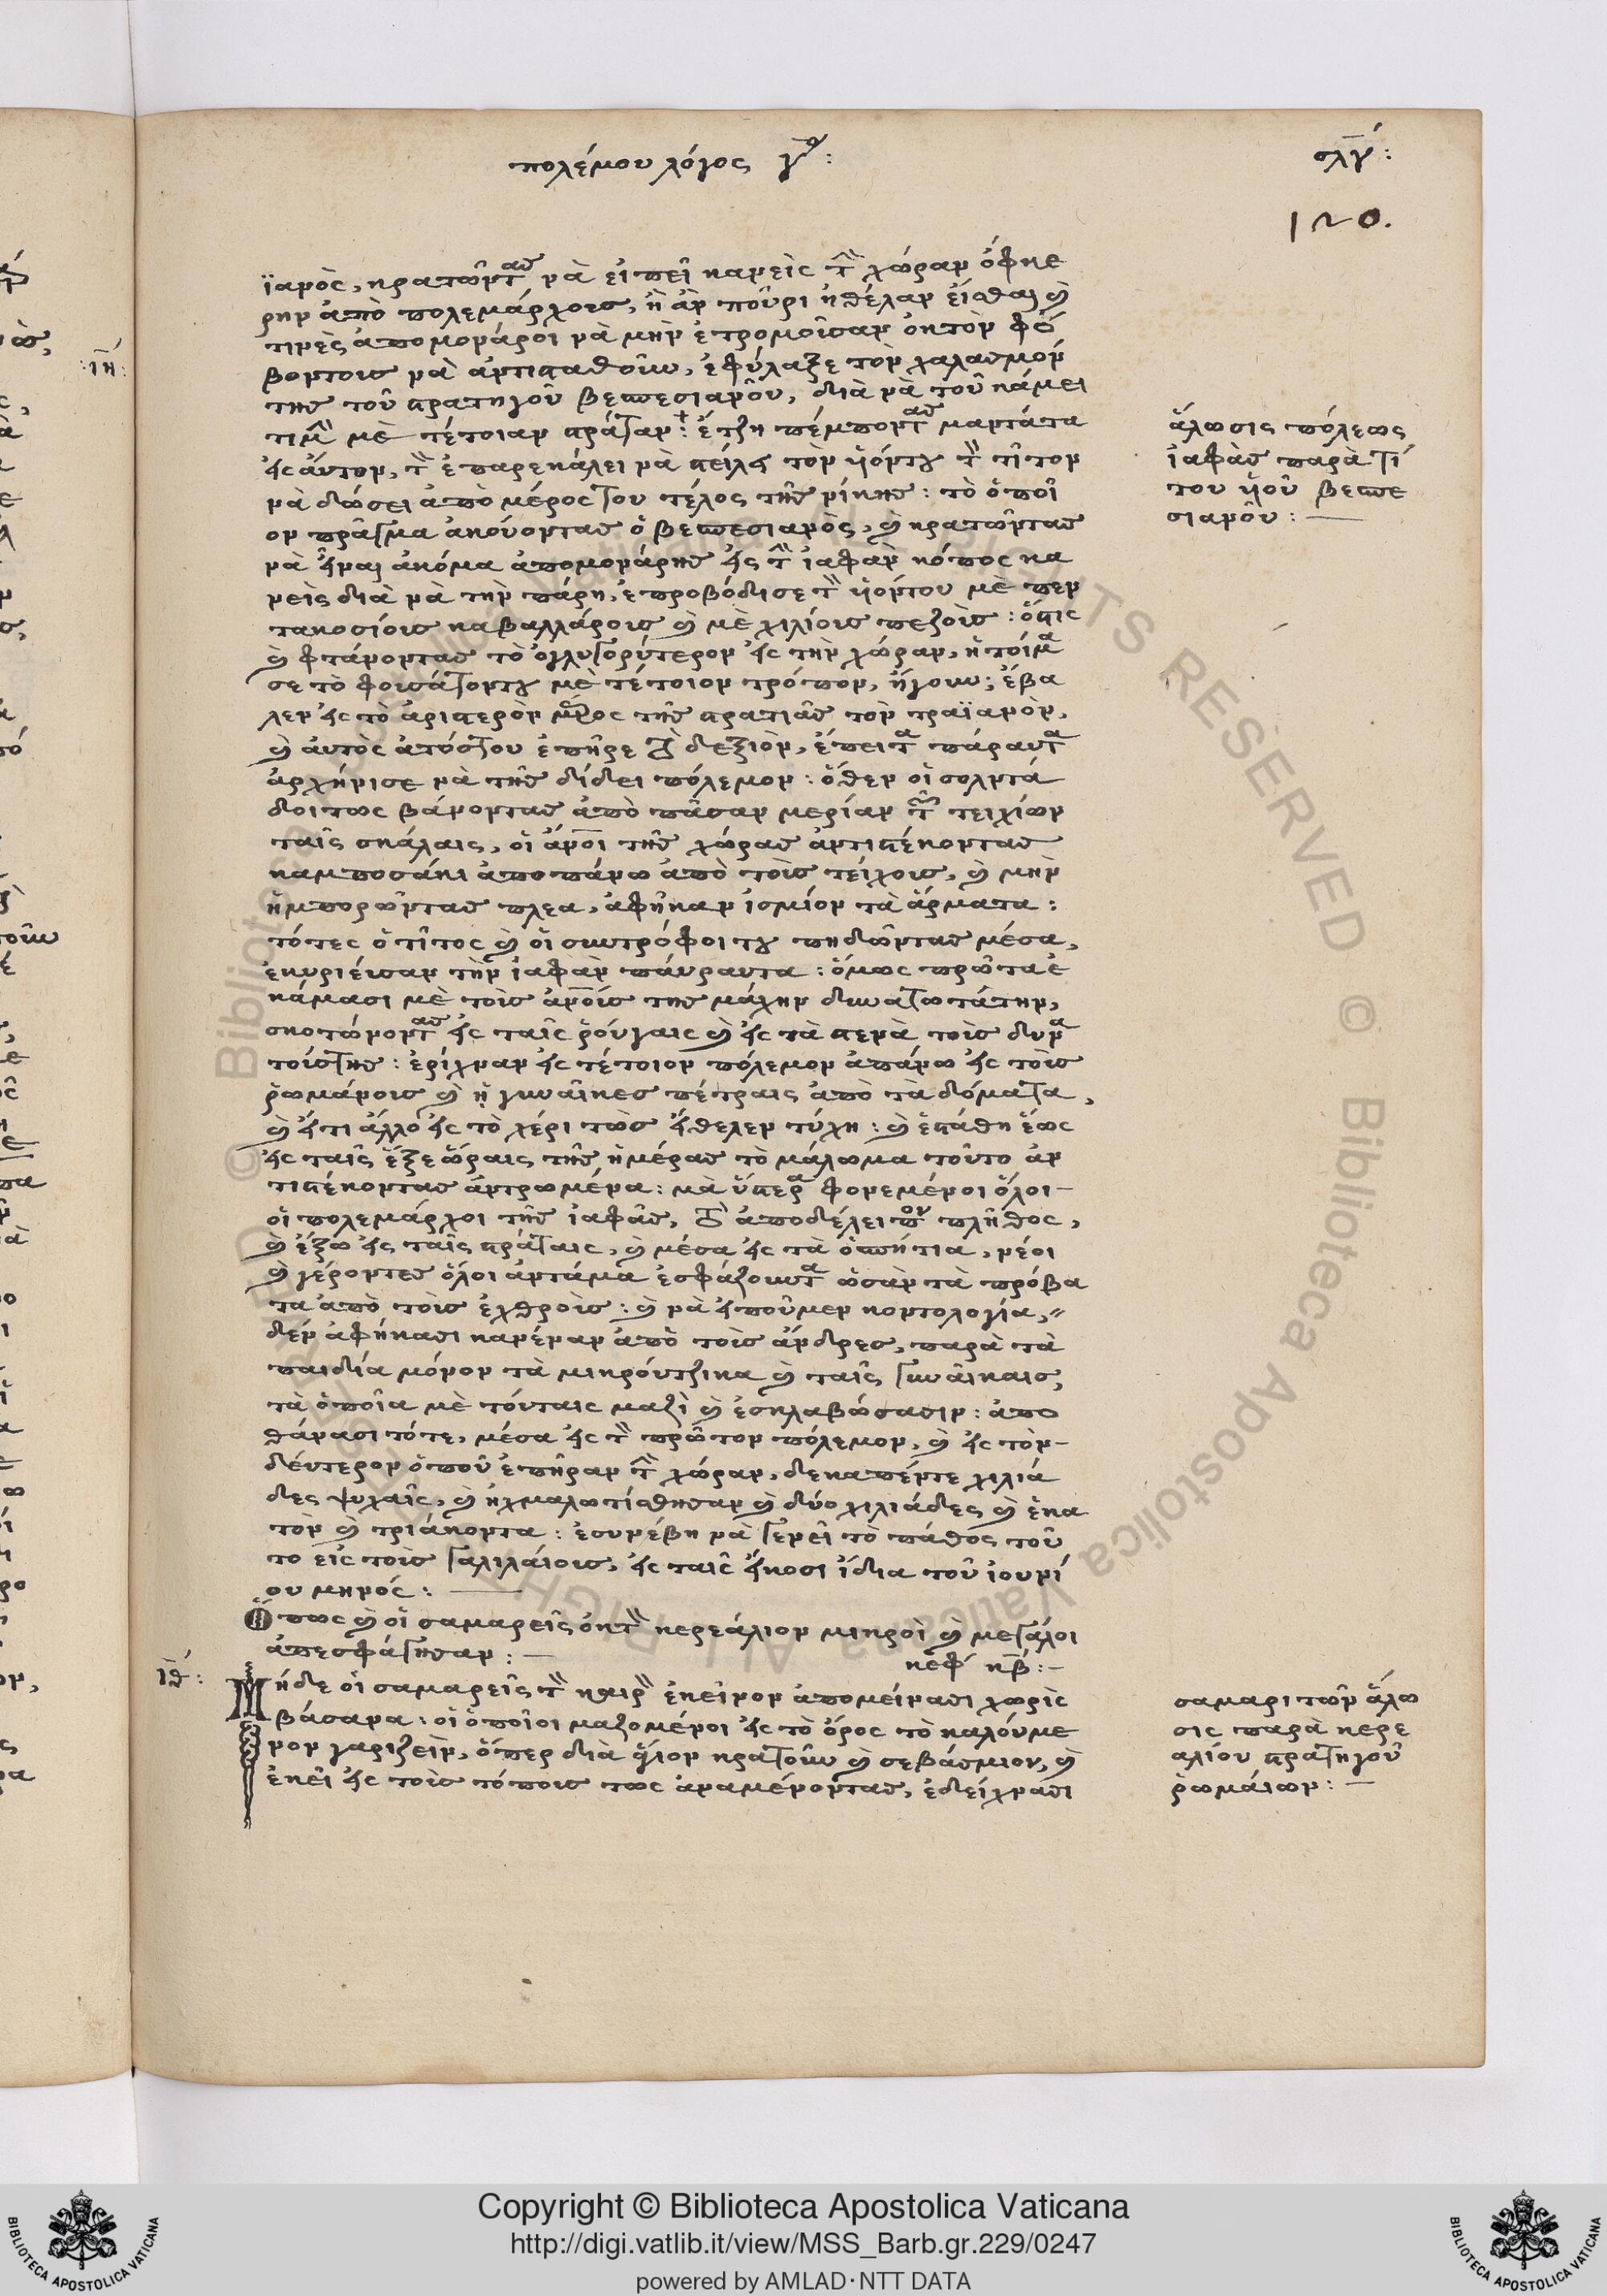 πολέμου λόγος γος:
σλγ:
120.
ϊανὸς, κρατῶντας νὰ εἰπεῖ κανεὶς τὴν χώραν ὄφκε
ρην ἀπὸ πολεμάρχους, ἢ ἂν ποῦρι ἠθέλαν εἶσθαι καὶ
τινὲς ἀπομονάροι νὰ μὴν ἐτρομοῦσαν ὀκτὸν φό
βοντους νὰ ἀντισταθοῦν, ἐφύλαξε τὸν χαλασμόν
της τοῦ στρατηγοῦ βεσπεσιανοῦ, διὰ νὰ τοῦ κάμει
τιμὴν μὲ τέτοιαν πράξαν: ἔτζη πέμποντας μαντάτα
εἰς αὐτον, τὸν ἐπαρεκάλει νὰ στείλει τὸν ὑόντου τὸν τῖτον
νὰ δώσει ἀπὸ μέρος του τέλος τῆς νίκης: τὸ ὁποῖ
ον πρᾶγμα ἀκούοντας ὁ βεσπεσιανὸς, καὶ κρατῶντας
νὰ εἶναι ἀκόμα ἀπομονάρης εἰς τὴν ἰαφὰν κόπος κα
νεὶς διὰ νὰ τὴν πάρη, ἐπροβόδισε τὸν ὑόντου μὲ πεν
τακοσίους καβαλλάρους καὶ μὲ χιλίους πεζοὺς: ὅστις
καὶ φτάνοντας τὸ ὀγλυγορύτερον εἰς τὴν χώραν, ἡτοίμα
σε τὸ φουσάτοντου μὲ τέτοιον τρόπον, ἤγουν; ἔβα
λεν εἰς τὸ ἀριστερὸν μέρος τῆς στρατιᾶς τὸν τραϊανὸν,
καὶ αὐτὸς ἀτόςτου ἐπῆρε τὸ δεξιὸν, ἔπειτα πάραυτα
ἀρχήνισε νὰ τῆς δίδει πόλεμον: ὅθεν οἱ σολντά
δοιτως βάνοντας ἀπὸ πᾶσαν μερίαν τῶν τειχίων
ταῖς σκάλαις, οἱ ἄνοι τῆς χώρας ἀντιστέκοντας
καμποσάκι ἀποπάνω ἀπὸ τοὺς τείχους, καὶ μὴν
ἠμπορῶντας πλεα, ἀφῆκαν ἰσμίον τὰ ἄρματα:
τότες ὁ τῖτος καὶ οἱ συντρόφοι του πηδῶντας μέσα,
ἐκυριέυσαν τὴν ἰαφὰν πάυραυτα: ὅμως πρῶτα ἐ
κάμασι μὲ τοὺς ἀνοὺς της μάχην δυνατωτάτην,
σκοτώνοντας εἰς ταῖς ῥούγαις καὶ εἰς τὰ στενὰ τοὺς δυνα
τούςτης: ἐρίχναν εἰς τέτοιον πόλεμον ἀπάνω εἰς τοὺς
ῥωμάνους καὶ ἡ γυναῖκες πέτραις ἀπὸ τὰ δόματα,
καὶ εἴτι ἄλλο εἰς τὸ χέρι τὼς ἤθελεν τύχη: καὶ ἐστάθη ἕως
εἰς ταῖς ἕξε ὥραις τῆς ἡμέρας τὸ μάλωμα τοῦτο ἀν
τιστέκοντας ἀντρωμένα: μὰ ὕστερα φονεμένοι ὅλοι
οἱ πολεμάρχοι τῆς ἰαφᾶς, τὸ ἀποδέλειπον πλῆθος,
καὶ ἔξω εἰς ταῖς στράταις, καὶ μέσα εἰς τὰ ὁσπήτια, νέοι
καὶ γέροντες ὅλοι ἀντάμα ἐσφάζουντα ὡσὰν τὰ πρόβα
τα ἀπὸ τοὺς ἐχθροὺς: καὶ νὰ εἰποῦμεν κοντολογία,
δὲν ἀφήκασι κανέναν ἀπὸ τοὺς ἄνδρες, παρὰ τὰ
παιδία μόνον τὰ μικρούτζικα καὶ ταῖς γυναῖκαις,
τὰ ὁποῖα μὲ τόυταις μαζὶ καὶ ἐσκλαβώσασιν: ἀπο
θάνασι τότε, μέσα εἰς τὸν πρῶτον πόλεμον, καὶ εἰς τὸν
δέυτερον ὁποῦ ἐπῆραν τὴν χώραν, δεκαπέντε χιλιά
δες ψυχαῖς, καὶ ἠχμαλωτίσθησαν καὶ δύο χιλιάδες καὶ ἑκα
τὸν καὶ τριάκοντα: ἐσυνέβη νὰ γενεῖ τὸ πάθος τοῦ
το εἰς τοὺς γαλιλάιους, εἰς ταῖς εἴκοσι ἴδια τοῦ ἰουνί
ου μηνός:
Ὅπως καὶ οἱ σαμαρεῖς ὀκτὸν κερεάλιον μικροὶ καὶ μεγάλοι
ἀπεσφάγησαν:
κεφ κβ:
ιθ:
Μήδε οἱ σαμαρεῖς τὸν καιρὸν ἐκεῖνον ἀπομείνασι χωρὶς
βάσανα: οἱ ὁποῖοι μαζομένοι εἰς τὸ ὄρος τὸ καλόυμε
νον γαριζεὶν, ὅπερ διὰ ἅγιον κρατοῦν καὶ σεβάσμιον, καὶ
ἐκεῖ εἰς τοὺς τόπους τως ἀναμένοντας, ἐδείχνασι
ἅλωσις πόλεως
ἰαφὰς παρὰ τί
του ὑοῦ βεσπε
σιανοῦ:
σαμαριτῶν ἅλω
σις παρὰ κερε
αλίου στρατηγοῦ
ῥωμάιων:
ιη:
Copyright © Biblioteca Apostolica Vaticana
http://digi.vatlib.it/view/MSS_Barb.gr.229/0247
powered by AMLAD·NTT DATA